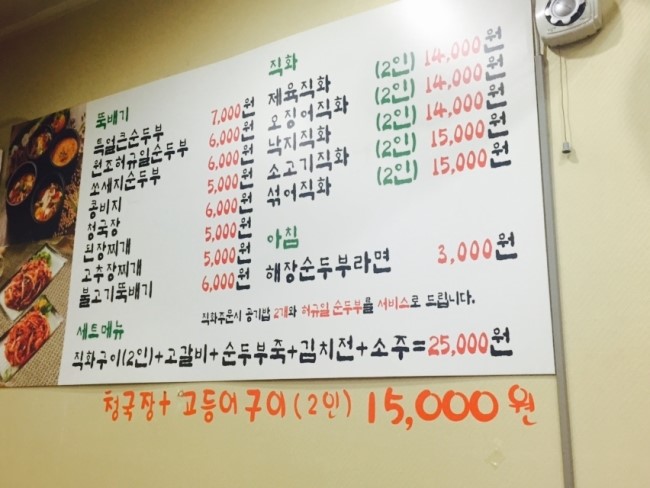 뚝배기
특얼큰순두부 7,000원
원조허규일순두부 6,000원
쏘세지순두부 6,000원
콩비지 5,000원
청국장 6,000원
된장찌개 5,000원
고추장찌개 5,000원
불고기뚝배기 6,000원
직화
제육직화 (2인) 14,000원
오징어직화 (2인) 14,000원
낙지직화 (2인) 14,000원
소고기직화 (2인) 15,000원
섞어직화 (2인) 15,000원
아침
해장순두부라면 3,000원
직화주문시 공기밥 2개와 허규일 순두부를 서비스로 드립니다.
세트메뉴
직화구이(2인)+고갈비+순두부죽+김치전+소주=25,000원
청국장+고등어구이(2인) 15,000원